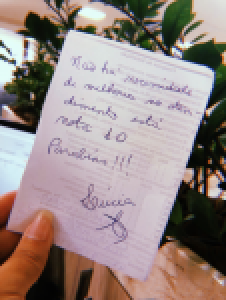 Não há necessidade
de melhoras no aten
dimento está
nota 10
Parabéns!!!